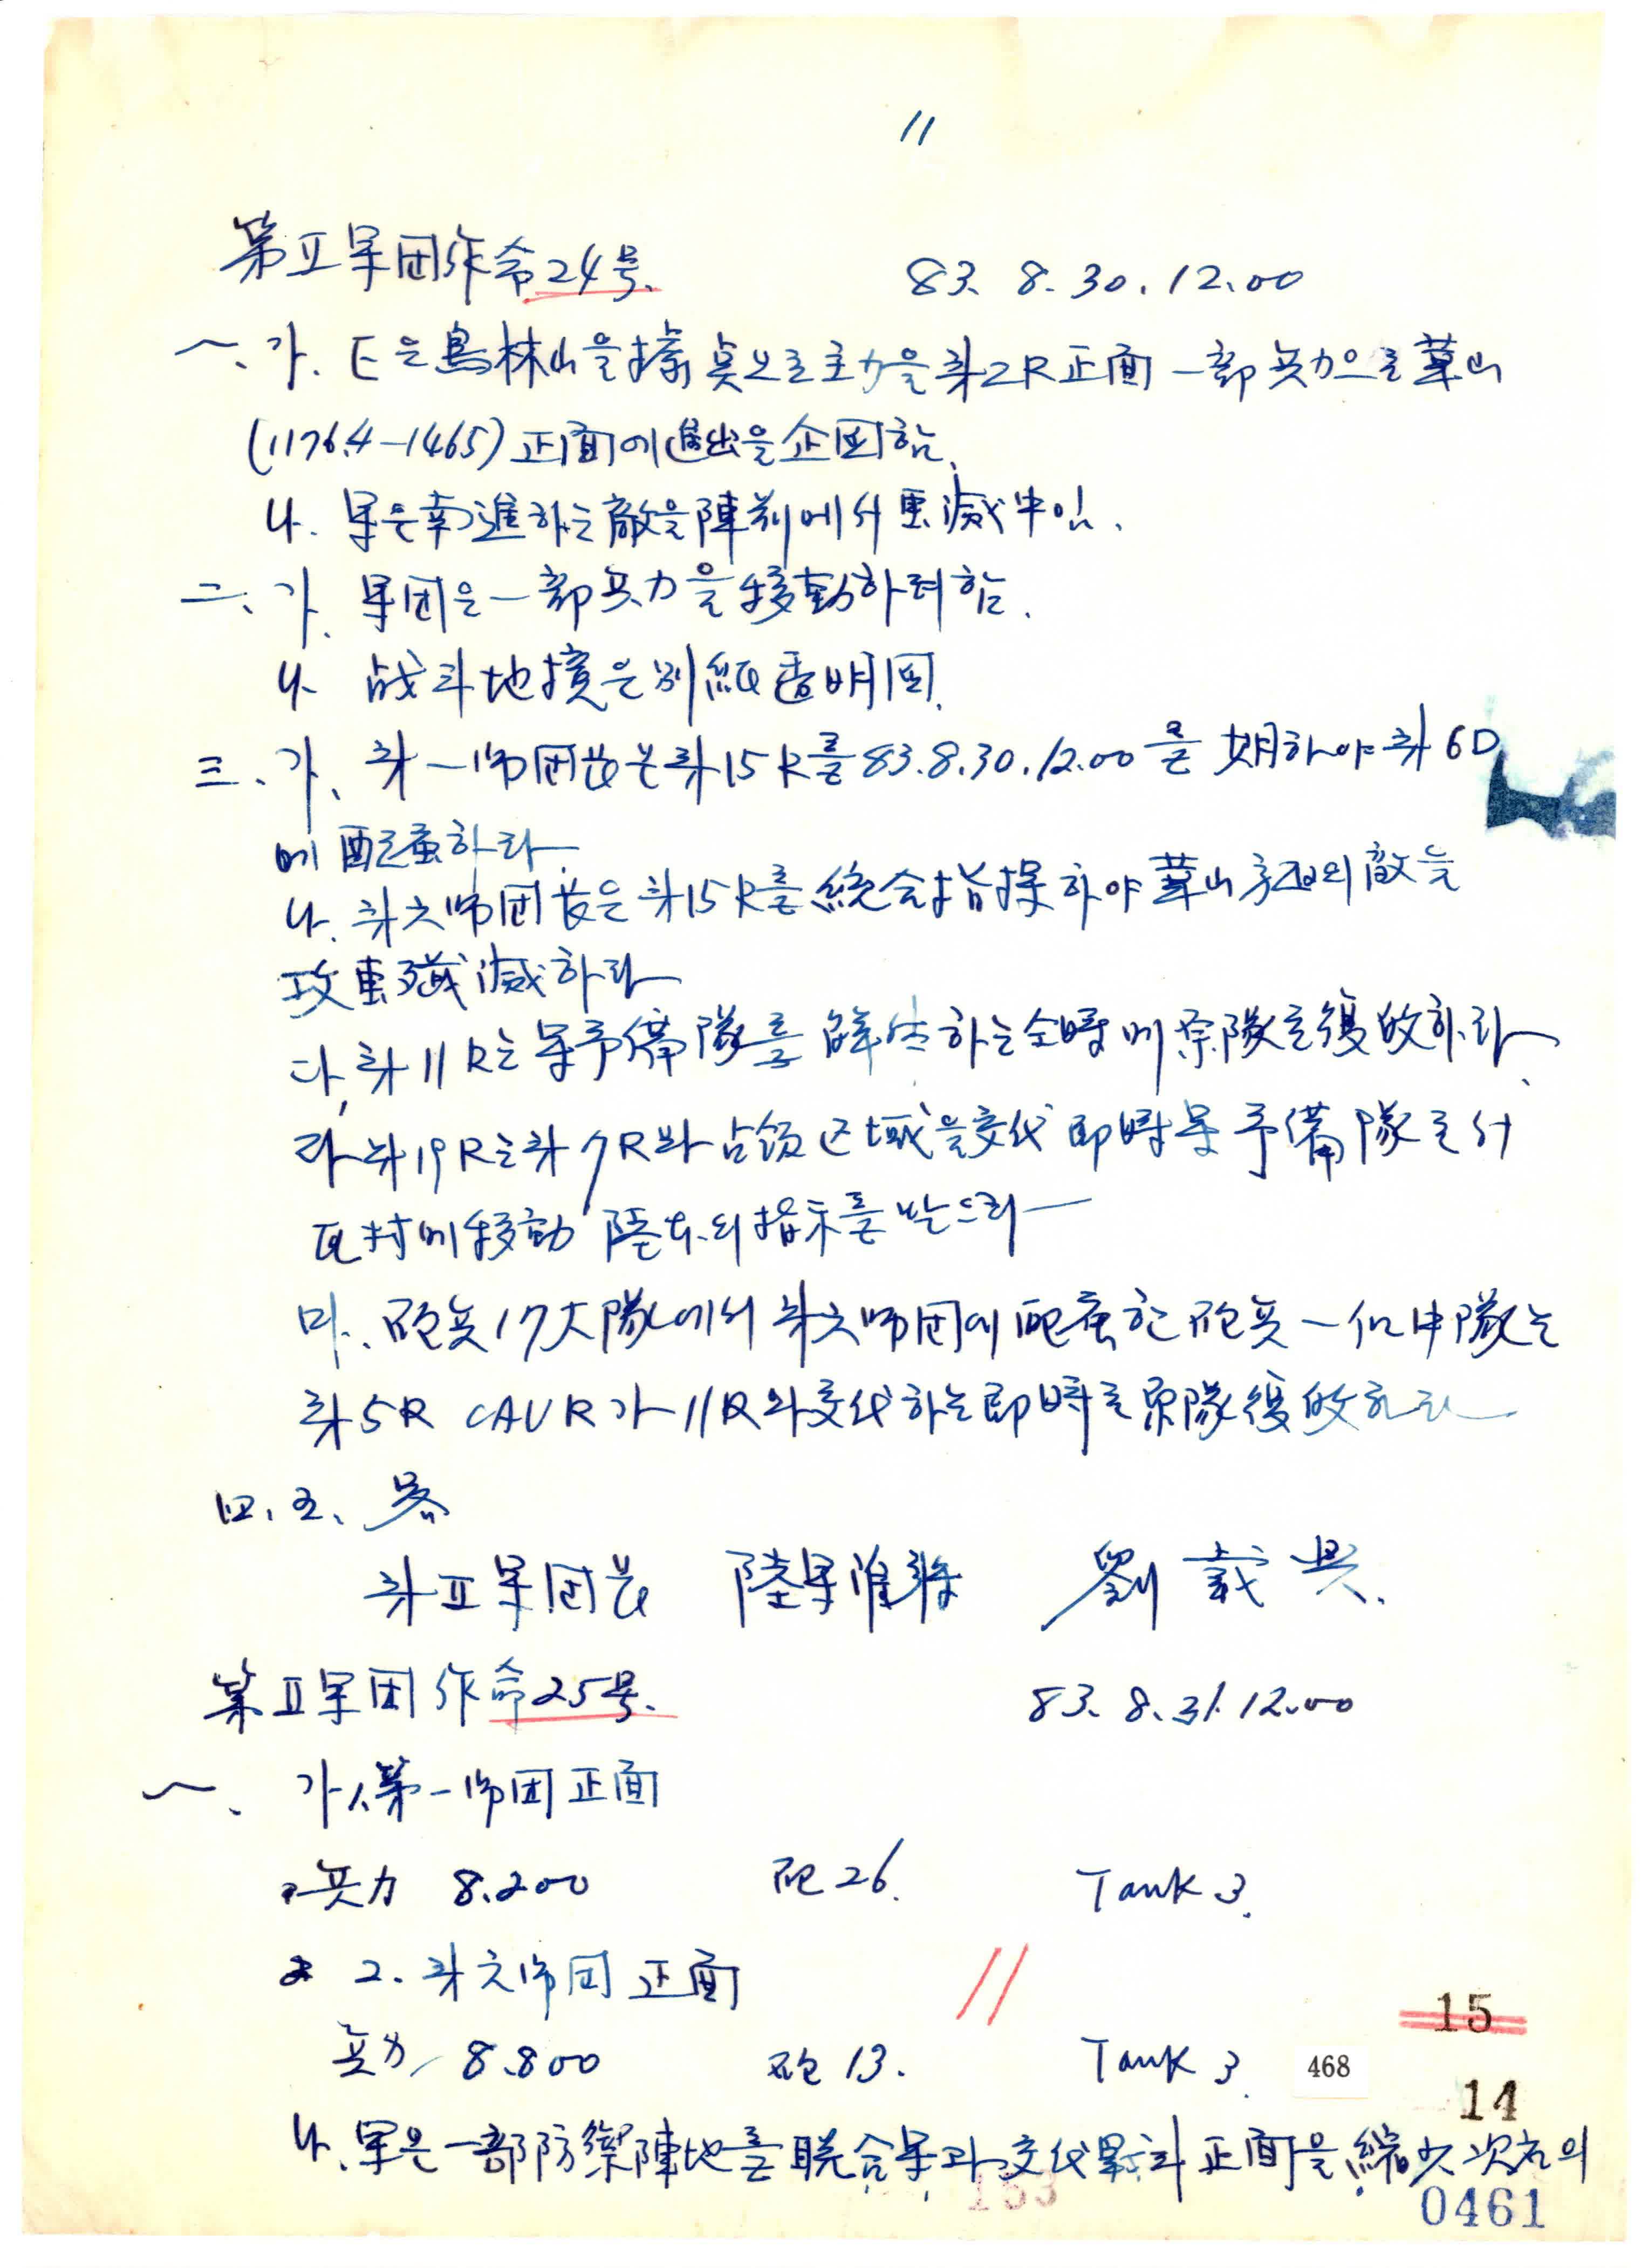 11
第Ⅱ軍団作命24号. 83. 8. 30. 12.00
一. 가. E은 鳥林山을 據点으로 主力을 第2R正面 一部兵力으로 華山
(1176.4-1465) 正面에 進出을 企図함.
나. 軍은 南進하는 敵을 陣前에서 重滅中임.
二. 가. 軍団은 一部兵力을 移動하려 함.
나 战斗地境은 別紙透明図.
三. 가. 第一师団長은 第15R를 83.8.30.12.00를 期하야 第6D
에 配属하라.
나. 第六师団長은 第15R를 統合指揮하야 華山方面의 敵을
攻重殲滅하라
다. 第11R는 軍予備隊를 解 하는 仝時에 原隊로 復敀하라.
라 第19R는 第7R와 占領区域을 交代 即時 軍予備隊로서
瓦村에 移動 陸本의 指示를 받으라
마. 砲兵17大隊에서 第六师団에 配属한 砲兵一個中隊는
第5R CAVR가 11R와 交代하는 即時로 原隊復敀하라
四. 五. 畧
第Ⅱ軍団長 陸軍准将 劉載興.
第Ⅱ軍団作命25号. 83. 8. 31. 12.00
一. 가. 1. 第一师団正面
兵力 8.200 砲26. Tank 3.
2. 第六师団 正面
兵力 8.800 砲13. Tank 3.
15
468
14
나. 軍은 一部防禦陣地를 聯合軍과 交代 正面을 縮少 次右의
153
0461